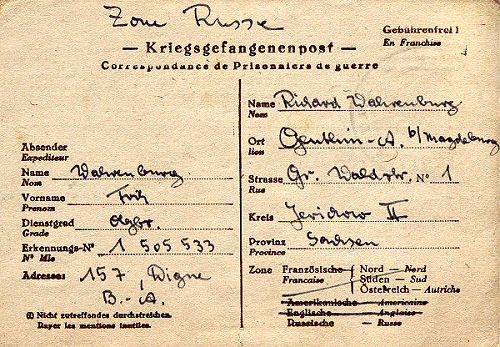 Zone Russe
Gebührenfrei!
En Franchise
— Kriegsgefangenenpost —
Correspondance de Prisonniers de guerre
Absender
Expediteur
Name Wahrenburg
Nom
Vorname Fritz
Prenom
Dienstgrad Ogfr.
Grade
Erkennungs-Nº 1 505 533
Nº Mle
Adresse: 157, Digne
B.-A.
(I) Nicht zutreffendes durchstreichen.
Rayer les mentions inutiles.
Name Richard Wahrenburg
Nom
Ort Genthin-A. b/Magdeburg
lieu
Strasse Gr. Waldstr. Nº 1
Rue
Kreis Jerichow II
Provinz Sachsen
Province
Zone Französische Nord — Nord
Francaise Süden — Sud
Österreich — Autriche
Amerikanische — Americaine
Englische — Anglaise
Russische — Russe